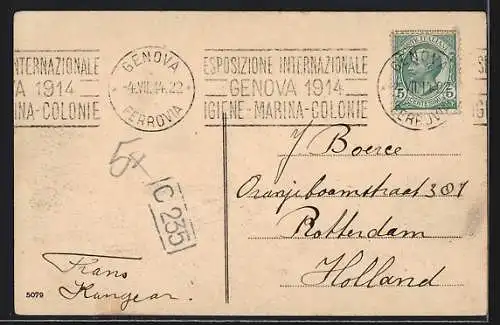 INTERNAZIONALE
VA 1914
RINA-COLONIE
GENOVA
4.VII.14.22
FERROVIA
ESPOSIZIONE INTERNAZIONALE
GENOVA 1914
IGIENE-MARINA-COLONIE
GENOVA
FERROVIA
5
5
5x
C 235
J Boerce
Oranjeboomstraat 307
Rotterdam
Holland
Frans
5079